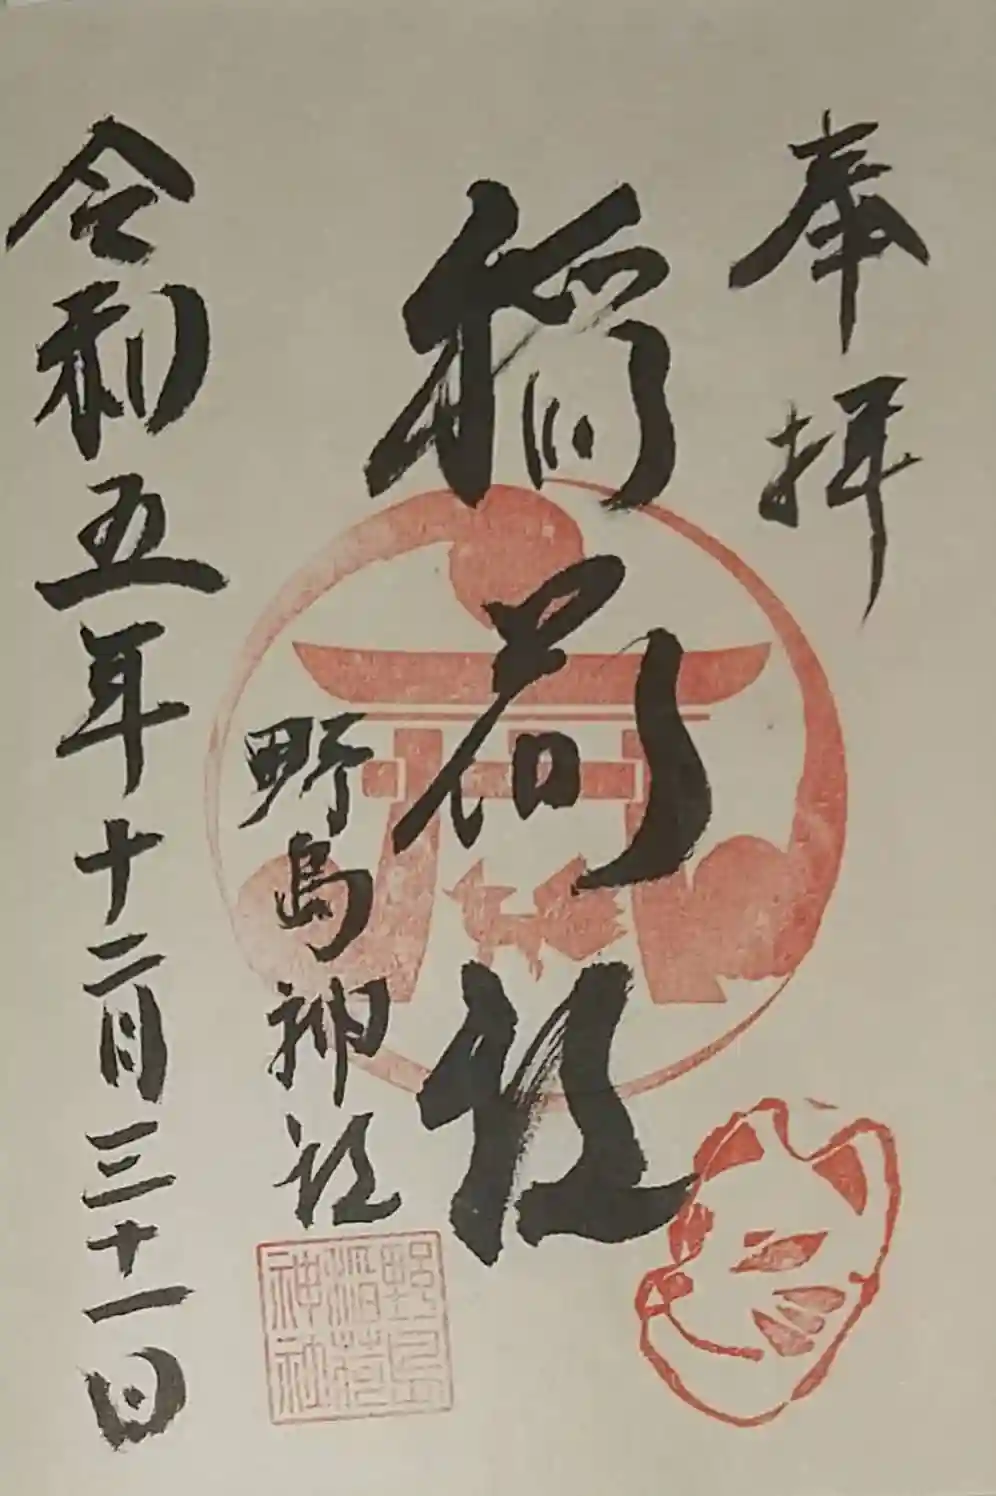 奉拝
稲荷社
野島神社
令和五年十二月三十一日
野島
稲荷
神社